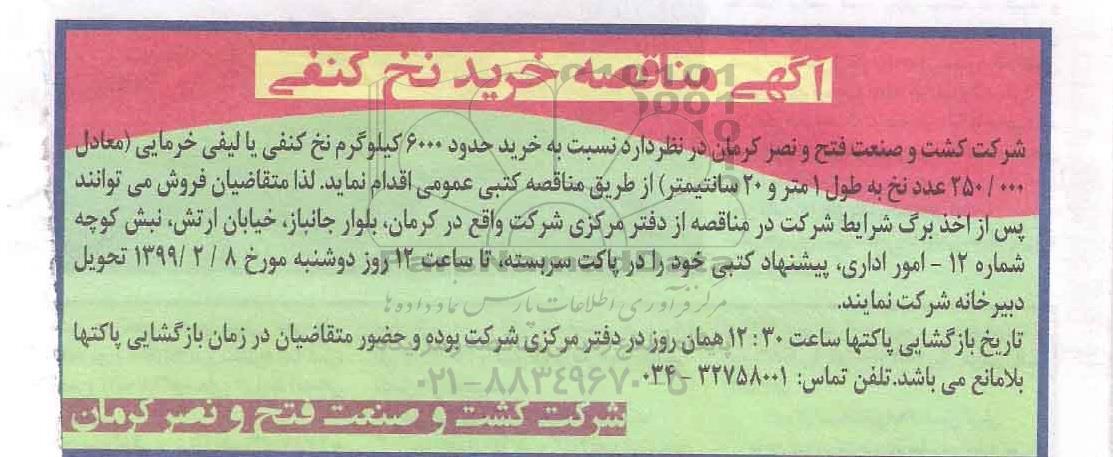 آگهی مناقصه خرید نخ کنفی
شرکت کشت و صنعت فتح و نصر کرمان در نظر دارد نسبت به خرید حدود ۶۰۰۰ کیلوگرم نخ کنفی یا لیفی خرمایی (معادل
۲۵۰/۰۰۰ عدد نخ به طول ۱ متر و ۲۰ سانتیمتر) از طریق مناقصه کتبی عمومی اقدام نماید. لذا متقاضیان فروش می توانند
پس از اخذ برگ شرایط شرکت در مناقصه از دفتر مرکزی شرکت واقع در کرمان، بلوار جانباز، خیابان ارتش، نبش کوچه
شماره ۱۲ - امور اداری، پیشنهاد کتبی خود را در پاکت سربسته، تا ساعت ۱۲ روز دوشنبه مورخ ۸ / ۲ / ۱۳۹۹ تحویل
دبیرخانه شرکت نمایند.
مرکز فرآوری اطلاعات پارس نماد داده ها
تاریخ بازگشایی پاکتها ساعت ۳۰ : ۱۲ همان روز در دفتر مرکزی شرکت بوده و حضور متقاضیان در زمان بازگشایی پاکتها
بلامانع می باشد. تلفن تماس: ۳۲۷۵۸۰۰۱ - ۰۳۴
۰۲۱-۸۸۳۴۹۶۷۰-۵
شرکت کشت و صنعت فتح و نصر کرمان